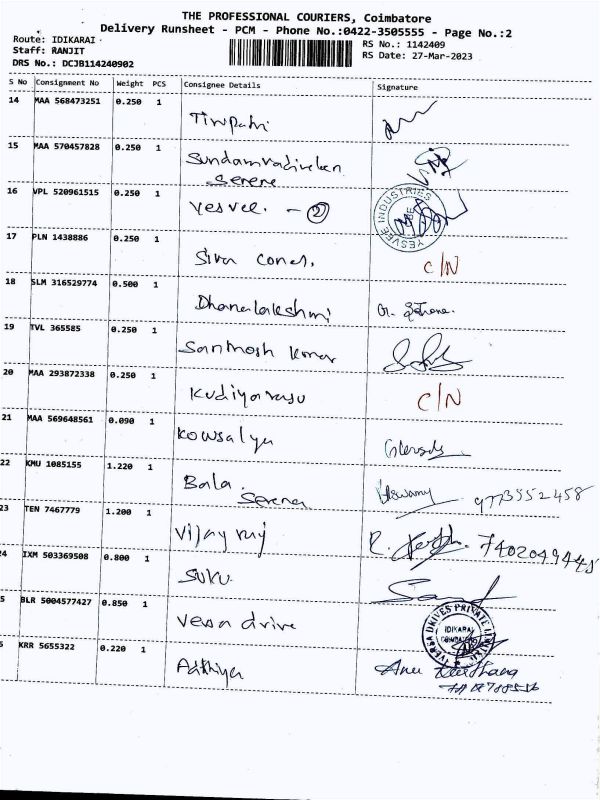 THE PROFESSIONAL COURIERS, Coimbatore
Delivery Runsheet - PCM - Phone No.:0422-3505555 - Page No.:2
Route: IDIKARAI
Staff: RANJIT
DRS No.: DCJB114240902
RS No.: 1142409
RS Date: 27-Mar-2023
S No Consignment No Weight PCS Consignee Details Signature
14 MAA 568473251 0.250 1 Tirupathi
15 MAA 570457828 0.250 1 Sundamvadivelan
Serene
16 VPL 520961515 0.250 1 Yesvee. - 2
YESVEE INDUSTRIES
CBE
17 PLN 1438886 0.250 1 Siva Cones. C/N
18 SLM 316529774 0.500 1 Dhanalakshmi
19 TVL 365585 0.250 1 Santhosh Kumar
20 MAA 293872338 0.250 1 Kudiyarasu C/N
21 MAA 569648561 0.090 1 Kowsalya
22 KMU 1085155 1.220 1 Bala.
Serene 9773552458
23 TEN 7467779 1.200 1 Vijay raj 7402049445
24 IXM 503369508 0.800 1 SUKU.
5 BLR 5004577427 0.850 1 Versa drive
VERSA DRIVES PRIVATE LIMITED
IDIKARAI
COIMBATORE
6 KRR 5655322 0.220 1 Adthiya Anu